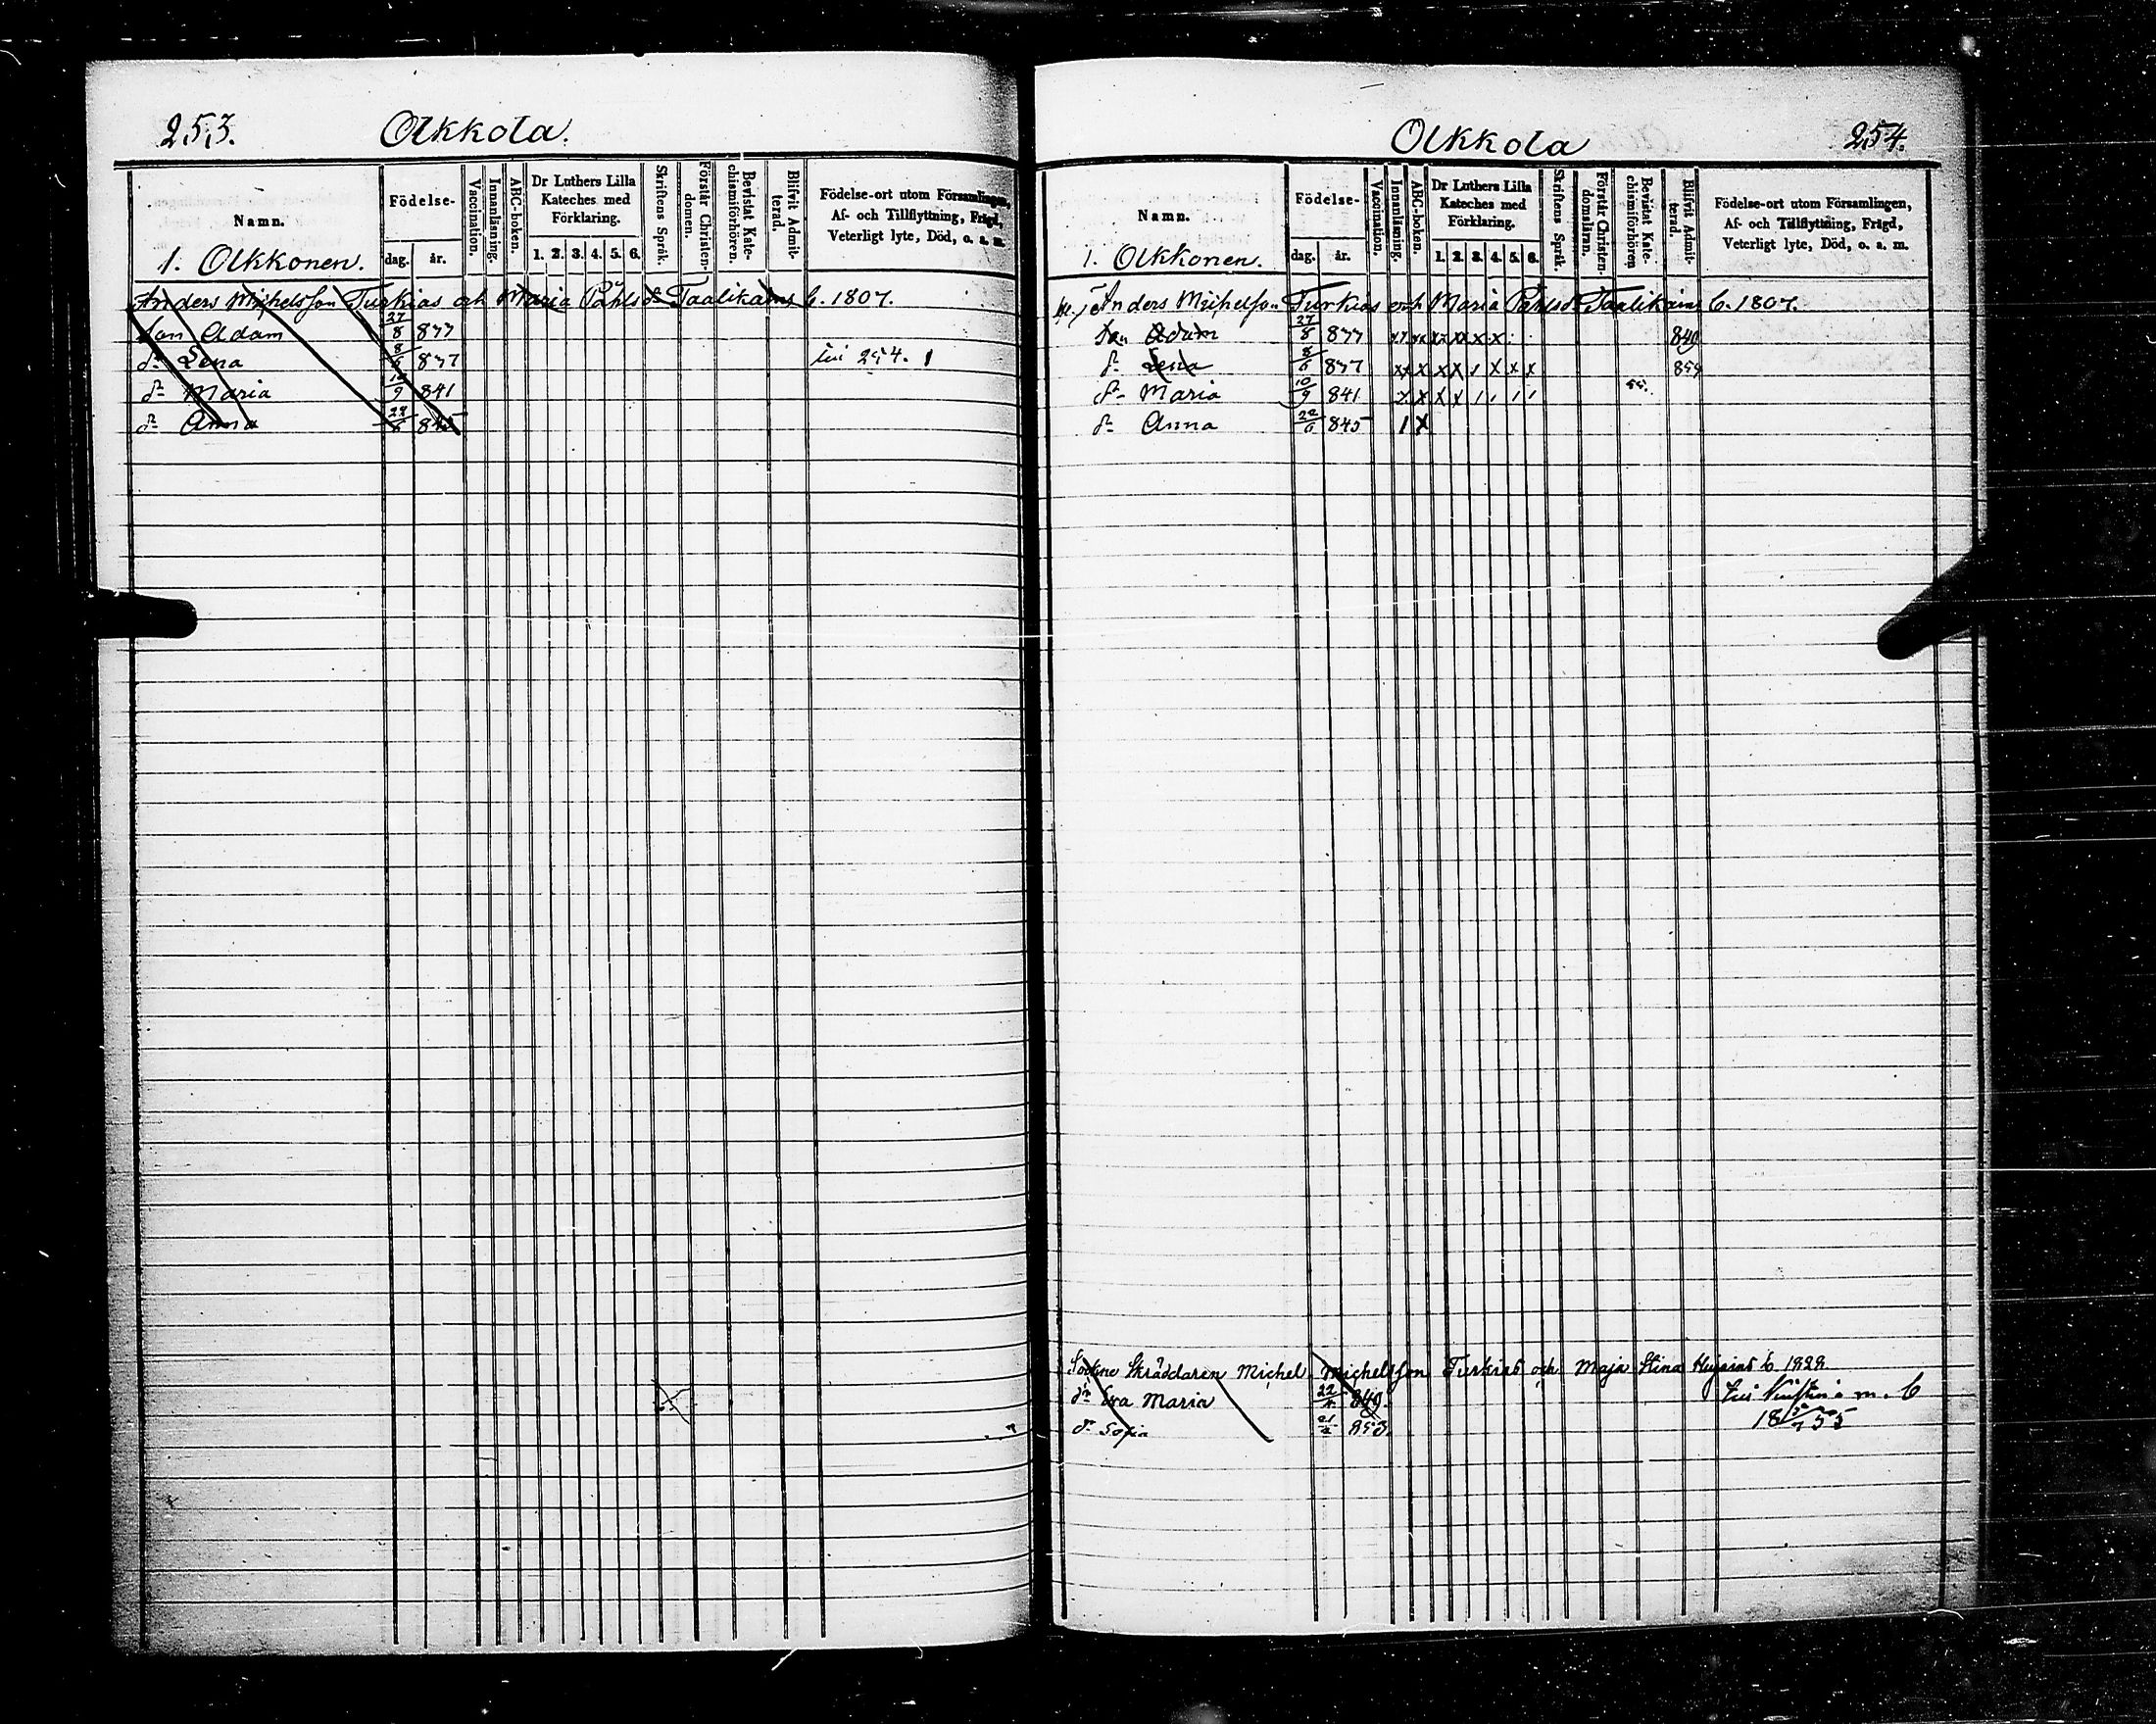 253. Olkkola.
Namn.
Födelse-
dag. år.
Vaccination.
Innanläsning.
ABC-boken.
Dr Luthers Lilla
Kateches med
Förklaring.
1. 2. 3. 4. 5. 6.
Skriftens Språk.
Förstår Christen-
domen.
Bevistat Kate-
chismiförhören.
Blifvit Admit-
terad.
Födelse-ort utom Församlingen,
Af- och Tillflyttning, Frägd,
Veterligt lyte, Död, o. s. m.
1. Olkkonen.
Anders Michelsson Turkias och Maria Påhlsdr Taalikains C. 1807.
Son Adam 27/8 837
dr Lena 8/6 837 254. 1
dr Maria 10/9 841
dr Anna 22/6 845
Olkkola 254.
Namn.
Födelse-
dag. år.
Vaccination.
Innanläsning.
ABC-boken.
Dr Luthers Lilla
Kateches med
Förklaring.
1. 2. 3. 4. 5. 6.
Skriftens Språk.
Förstår Christen-
domsläran.
Bevistat Kate-
chismiförhören
Blifvit Admit-
terad.
Födelse-ort utom Församlingen,
Af- och Tillflyttning, Frägd,
Veterligt lyte, Död, o. s. m.
1. Olkkonen.
Anders Michelson Turkias och Maria Påhlsdr Taalikains C. 1807.
Son Adam 27/8 837 x x x x x x x x 840
dr Lena 8/6 837 x x x x x 1 x x x 859
dr Maria 10/9 841 x x x x 1 1 1 1 55.
dr Anna 22/6 845 1 x
Sockne Skräddaren Michel Michelsson Turkias och Maja Stina C. 1828
dr Eva Maria 22/ 849. m. C
dr Sofia 21/ 853. 18 55